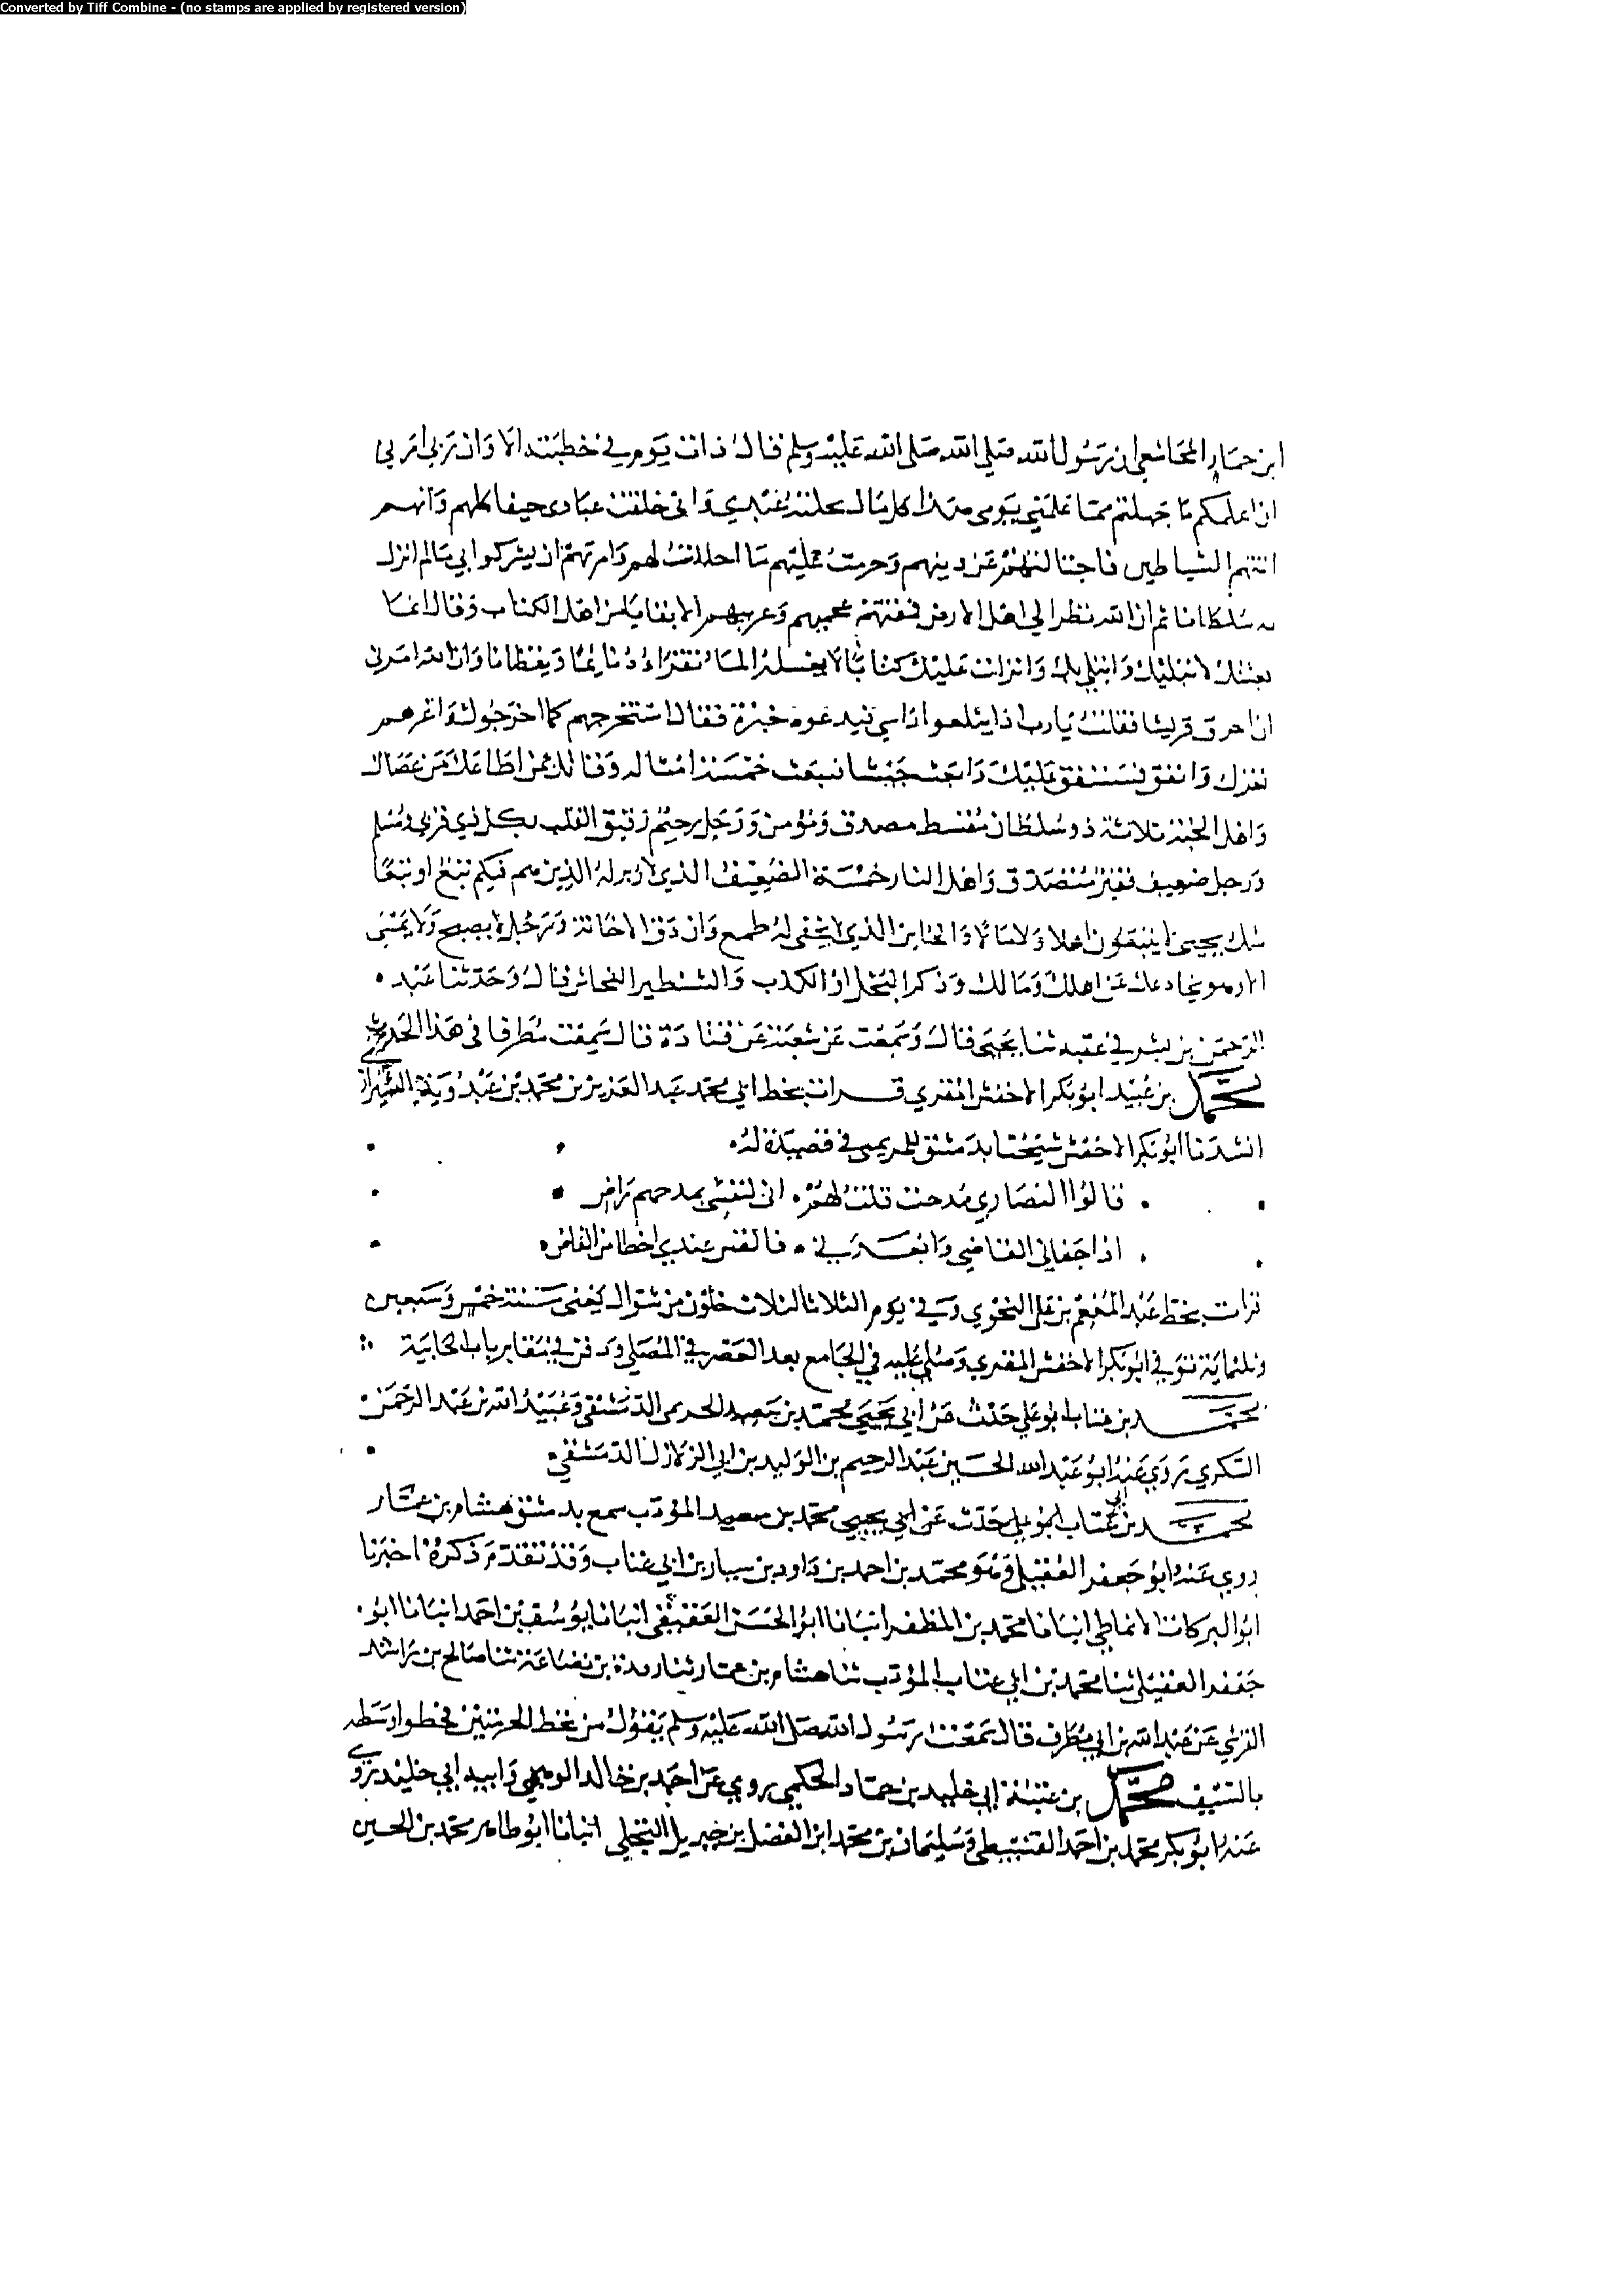 Converted by Tiff Combine - (no stamps are applied by registered version)
ابن حمار المجاشعي ان رسول الله صلي الله صلى الله عليه وسلم قال ذات يوم في خطبته الا وان ربي امرني
ان اعلمكم ما جهلتم مما علمني يومي هذا كل مال نحلته عبدي واني خلقت عبادي حنيفا كلهم وانهم
اتتهم الشياطين فاجتالتهم عن دينهم وحرمت عليهم ما احللت لهم وامرتهم ان يشركوا بي مالم انزل
به سلطانا ثم ان الله نظر الي اهل الارض فمقتهم عجمهم وعربهم الا بقايا من اهل الكتاب وقال انما
بعثتك لابتليك وابتلي بك وانزلت عليك كتابا لا يغسله الماء تقراه نايما ويقظانا وان الله امرني
ان احرق قريشا فقلت يا رب اذا يثلغوا راسي فيدعوه خبزة فقال استخرجهم كما اخرجوك واغزهم
نغزك وانفق فسننفق عليك وابعث جيشا نبعث خمسة امثاله وقاتل بمن اطاعك من عصاك
واهل الجنة ثلاثة ذو سلطان مقسط مصدق ومؤمن ورجل رحيم رقيق القلب بكل ذي قربي ومسلم
ورجل ضعيف فقير متصدق واهل النار خمسة الضعيف الذي لا زبر له الذين هم فيكم تبع او تبعا
شك يحيى لا يبتغون اهلا ولا مالا والخاين الذي لا يخفى له طمع وان دق الا خانه ورجل لا يصبح ولا يمسي
الا وهو يخادعك عن اهلك ومالك وذكر البخل او الكذب والشنظير الفحاش قال وحدثنا عبد
الرحمن بن بشر في عقبه ثنا يحيى قال وسمعت عن شعبة عن قتادة قال سمعت مطرفا في هذا الحديث
محمد بن عبيد ابو بكر الاخفش المقري قرات بخط ابي محمد عبد العزيز بن محمد بن عبدويه الشيرازي
انشدنا ابو بكر الاخفش شيخنا بدمشق للمريمي في قصيدة له
قالوا النصاري مدحت قلت لهم اني لنفسي بمدحهم راض
اذا جفاني القاضي وابعدني فالقس عندي اخطا من القاض
قرات بخط عبد المنعم بن علي النحوي وفي يوم الثلاثا لثلاث خلون من شوال يعني سنة خمس وسبعين
وثلثماية توفي ابو بكر الاخفش المقري وصلي عليه في الجامع بعد العصر في المصلي ودفن في مقابر باب الجابية
محمد بن عتاب ابو علي حدث عن ابي يحيى محمد بن سعيد الحريمي الدمشقي وعبيد الله بن عبد الرحمن
السكري روي عنه ابو عبد الله الحسين بن عبد الرحيم بن الوليد بن ابي الزلازل الدمشقي
محمد بن ابي عتاب ابو علي حدث عن ابي يحيى محمد بن سعيد المؤدب سمع بدمشق هشام بن عمار
روي عنه ابو جعفر العقيلي وهو محمد بن احمد بن داود بن سيار بن ابي عتاب وقد تقدم ذكره اخبرنا
ابو البركات الانماطي انبانا محمد بن المظفر انبانا ابو الحسن العتيقي انبانا يوسف بن احمد انبانا ابو
جعفر العقيلي ثنا محمد بن ابي عتاب المؤدب ثنا هشام بن عمار ثنا رفدة بن قضاعة ثنا صالح بن راشد
القرشي عن عبد الله بن ابي مطرف قال سمعت رسول الله صلى الله عليه وسلم يقول من تخط الحرمتين فخطوا وسطه
بالسيف محمد بن عتبة ابي خليد بن حماد الحكمي يروي عن احمد بن خالد الوهبي وابيه ابي خليد روي
عنه ابو بكر محمد بن احمد القنبيطي وسليمان بن محمد ابن الفضل بن جبريل البجلي انبانا ابو طاهر محمد بن الحسين